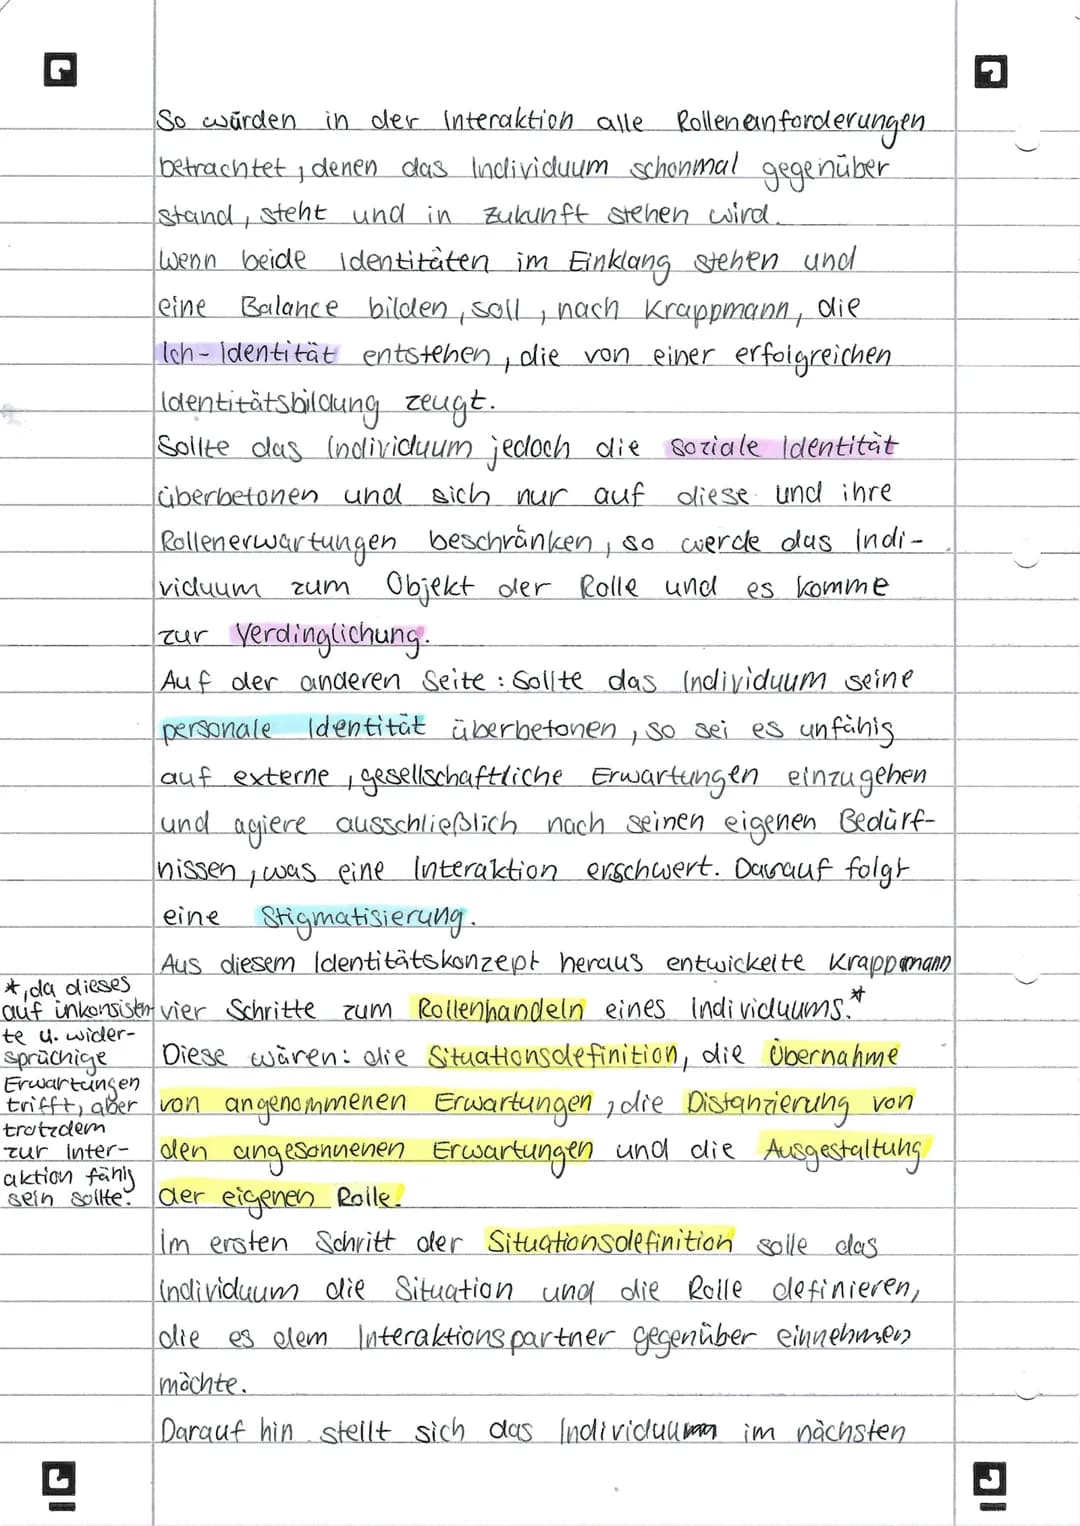 So würden in der Interaktion alle Rollenanforderungen
betrachtet, denen das Individuum schonmal gegenüber
stand, steht und in Zukunft stehen wird.
Wenn beide Identitäten im Einklang stehen und
eine Balance bilden, soll, nach Krappmann, die
Ich-Identität entstehen, die von einer erfolgreichen
Identitätsbildung zeugt.
Sollte das Individuum jedoch die soziale Identität
überbetonen und sich nur auf diese und ihre
Rollenerwartungen beschränken, so werde das Indi-
viduum zum Objekt der Rolle und es komme
zur Verdinglichung.
Auf der anderen Seite: Sollte das Individuum seine
personale Identität überbetonen, so sei es unfähig
auf externe, gesellschaftliche Erwartungen einzugehen
und agiere ausschließlich nach seinen eigenen Bedürf-
nissen, was eine Interaktion erschwert. Darauf folgt
eine Stigmatisierung.
Aus diesem Identitätskonzept heraus entwickelte Krappmann
vier Schritte zum Rollenhandeln eines Individuums.*
Diese wären: die Situationsdefinition, die Übernahme
von angenommenen Erwartungen, die Distanzierung von
den angesonnenen Erwartungen und die Ausgestaltung
der eigenen Rolle.
Im ersten Schritt der Situationsdefinition solle das
Individuum die Situation und die Rolle definieren,
die es dem Interaktionspartner gegenüber einnehmen
möchte.
Darauf hin stellt sich das Individuum im nächsten
*, da dieses
auf inkonsisten
te u. wider-
sprüchige
Erwartungen
trifft, aber
trotzdem
zur Inter-
aktion fähig
sein sollte.